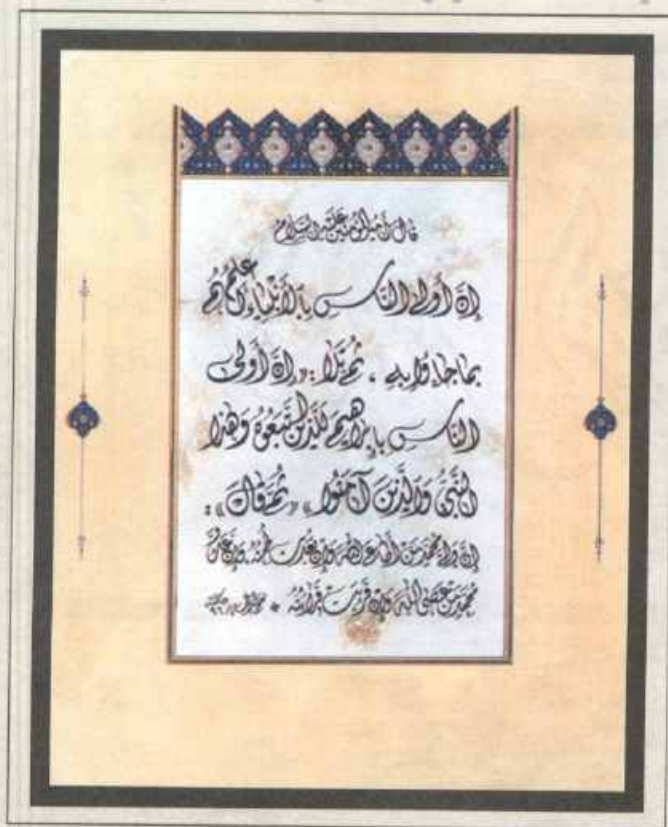 قال أمير المؤمنين عليه السلام
إن أولى الناس بالأنبياء أعلمهم
بما جاءوا به ، ثم تلا : « إن أولى
الناس بإبراهيم للذين اتبعوه وهذا
النبي والذين آمنوا » « ثم قال » :
إن ولي محمد من أطاع الله وإن بعدت لحمته وإن عدو
محمد من عصى الله وإن قربت قرابته